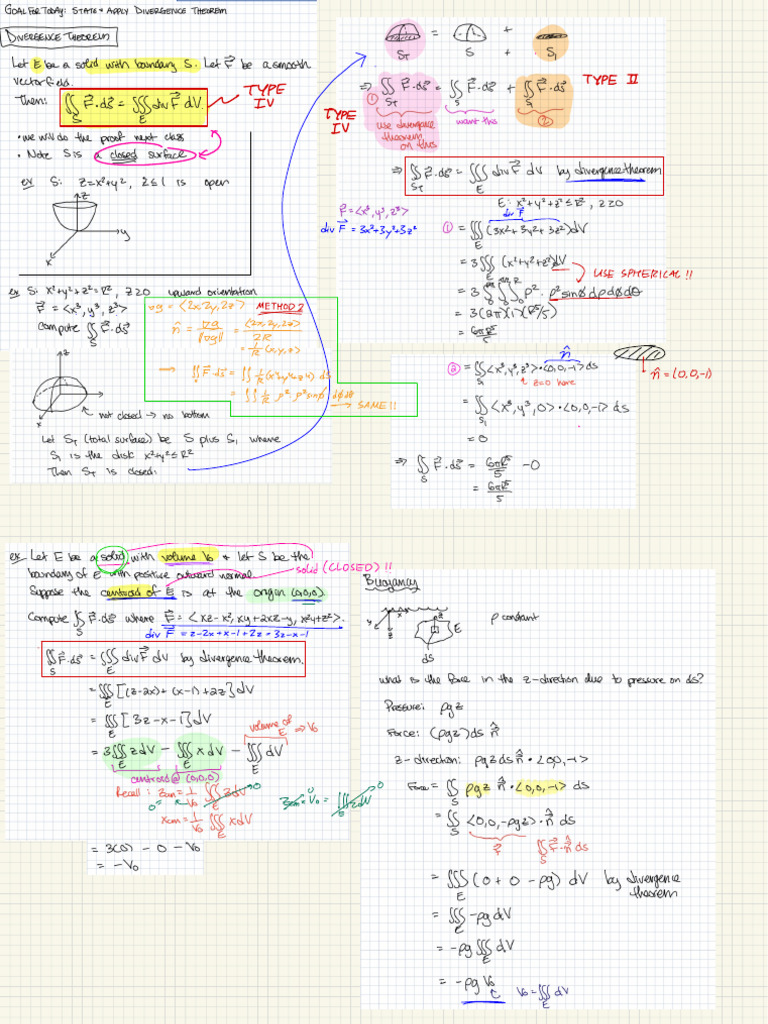 GOAL FOR TODAY: STATE & APPLY DIVERGENCE THEOREM
DIVERGENCE THEOREM
Let E be a solid with boundary S. Let F⃗ be a smooth
vector field.
Then: ∬_S F⃗·dS⃗ = ∭_E div F⃗ dV.
TYPE IV
• we will do the proof next class
• Note S is a closed surface
ex S: z=x²+y², z≤1 is open
z
y
x
ex S: x²+y²+z²=R², z≥0 upward orientation
F⃗ = <x³, y³, z³>
Compute ∬_S F⃗·dS⃗
∇g = <2x, 2y, 2z> METHOD 2
n̂ = ∇g/‖∇g‖ = <2x, 2y, 2z>/2R
= 1/R (x, y, z)
⟹ ∬_S F⃗·dS⃗ = ∬ 1/R (x⁴+y⁴+z⁴) dS
SAME!!
z
x
not closed → no bottom
Let S_T (total surface) be S plus S₁ where
S₁ is the disk x²+y² ≤ R²
Then S_T is closed:
= +
S_T S + S₁
⟹ ∬_{S_T} F⃗·dS⃗ = ∬_S F⃗·dS⃗ + ∬_{S₁} F⃗·dS⃗ TYPE II
TYPE IV
① use divergence theorem on this
want this
②
⟹ ∬_{S_T} F⃗·dS⃗ = ∭_E div F⃗ dV by divergence theorem
E: x²+y²+z² ≤ R², z≥0
F⃗ = <x³, y³, z³>
div F⃗ = 3x²+3y²+3z²
div F⃗
① = ∭_E (3x²+3y²+3z²) dV
= 3∭_E (x²+y²+z²) dV
USE SPHERICAL!!
= 3 ∫∫∫ ρ²·ρ² sinφ dρ dφ dθ
= 3(2π)(1)(R⁵/5)
= 6πR⁵/5
n̂
② = ∬_{S₁} <x³, y³, z³>·<0,0,-1> dS
z=0 here
n̂ = (0,0,-1)
= ∬_{S₁} <x³, y³, 0>·<0,0,-1> dS
= 0
⟹ ∬_S F⃗·dS⃗ = 6πR⁵/5 - 0
= 6πR⁵/5
ex Let E be a solid with volume V₀ & let S be the
boundary of E with positive outward normal.
solid (CLOSED)!!
Suppose the centroid of E is at the origin (0,0,0).
Compute ∬_S F⃗·dS⃗ where F⃗ = <xz-x², xy+2xz-y, x²y+z²>.
div F⃗ = z-2x+x-1+2z = 3z-x-1
∬_S F⃗·dS⃗ = ∭_E div F⃗ dV by divergence theorem.
= ∭_E [(z-2x)+(x-1)+2z] dV
= ∭_E [3z-x-1] dV
volume of E ⟹ V₀
= 3∭_E z dV - ∭_E x dV - ∭_E dV
centroid @ (0,0,0)
Recall: z_cm = 1/V₀ ∭_E z dV
x_cm = 1/V₀ ∭_E x dV
= 3(0) - 0 - V₀
= -V₀
Buoyancy
y x z
z
E
dS
ρ constant
What is the force in the z-direction due to pressure on dS?
Pressure: ρgz
Force: (ρgz) dS n̂
z-direction: ρgz dS n̂·<0,0,-1>
Force = ∬_S ρgz n̂·<0,0,-1> dS
= ∬_S <0,0,-ρgz>·n̂ dS
F⃗
∬_S F⃗·n̂ dS
= ∭_E (0+0-ρg) dV by divergence theorem
= ∭_E -ρg dV
= -ρg ∭_E dV
= -ρg V₀
V₀ = ∭_E dV